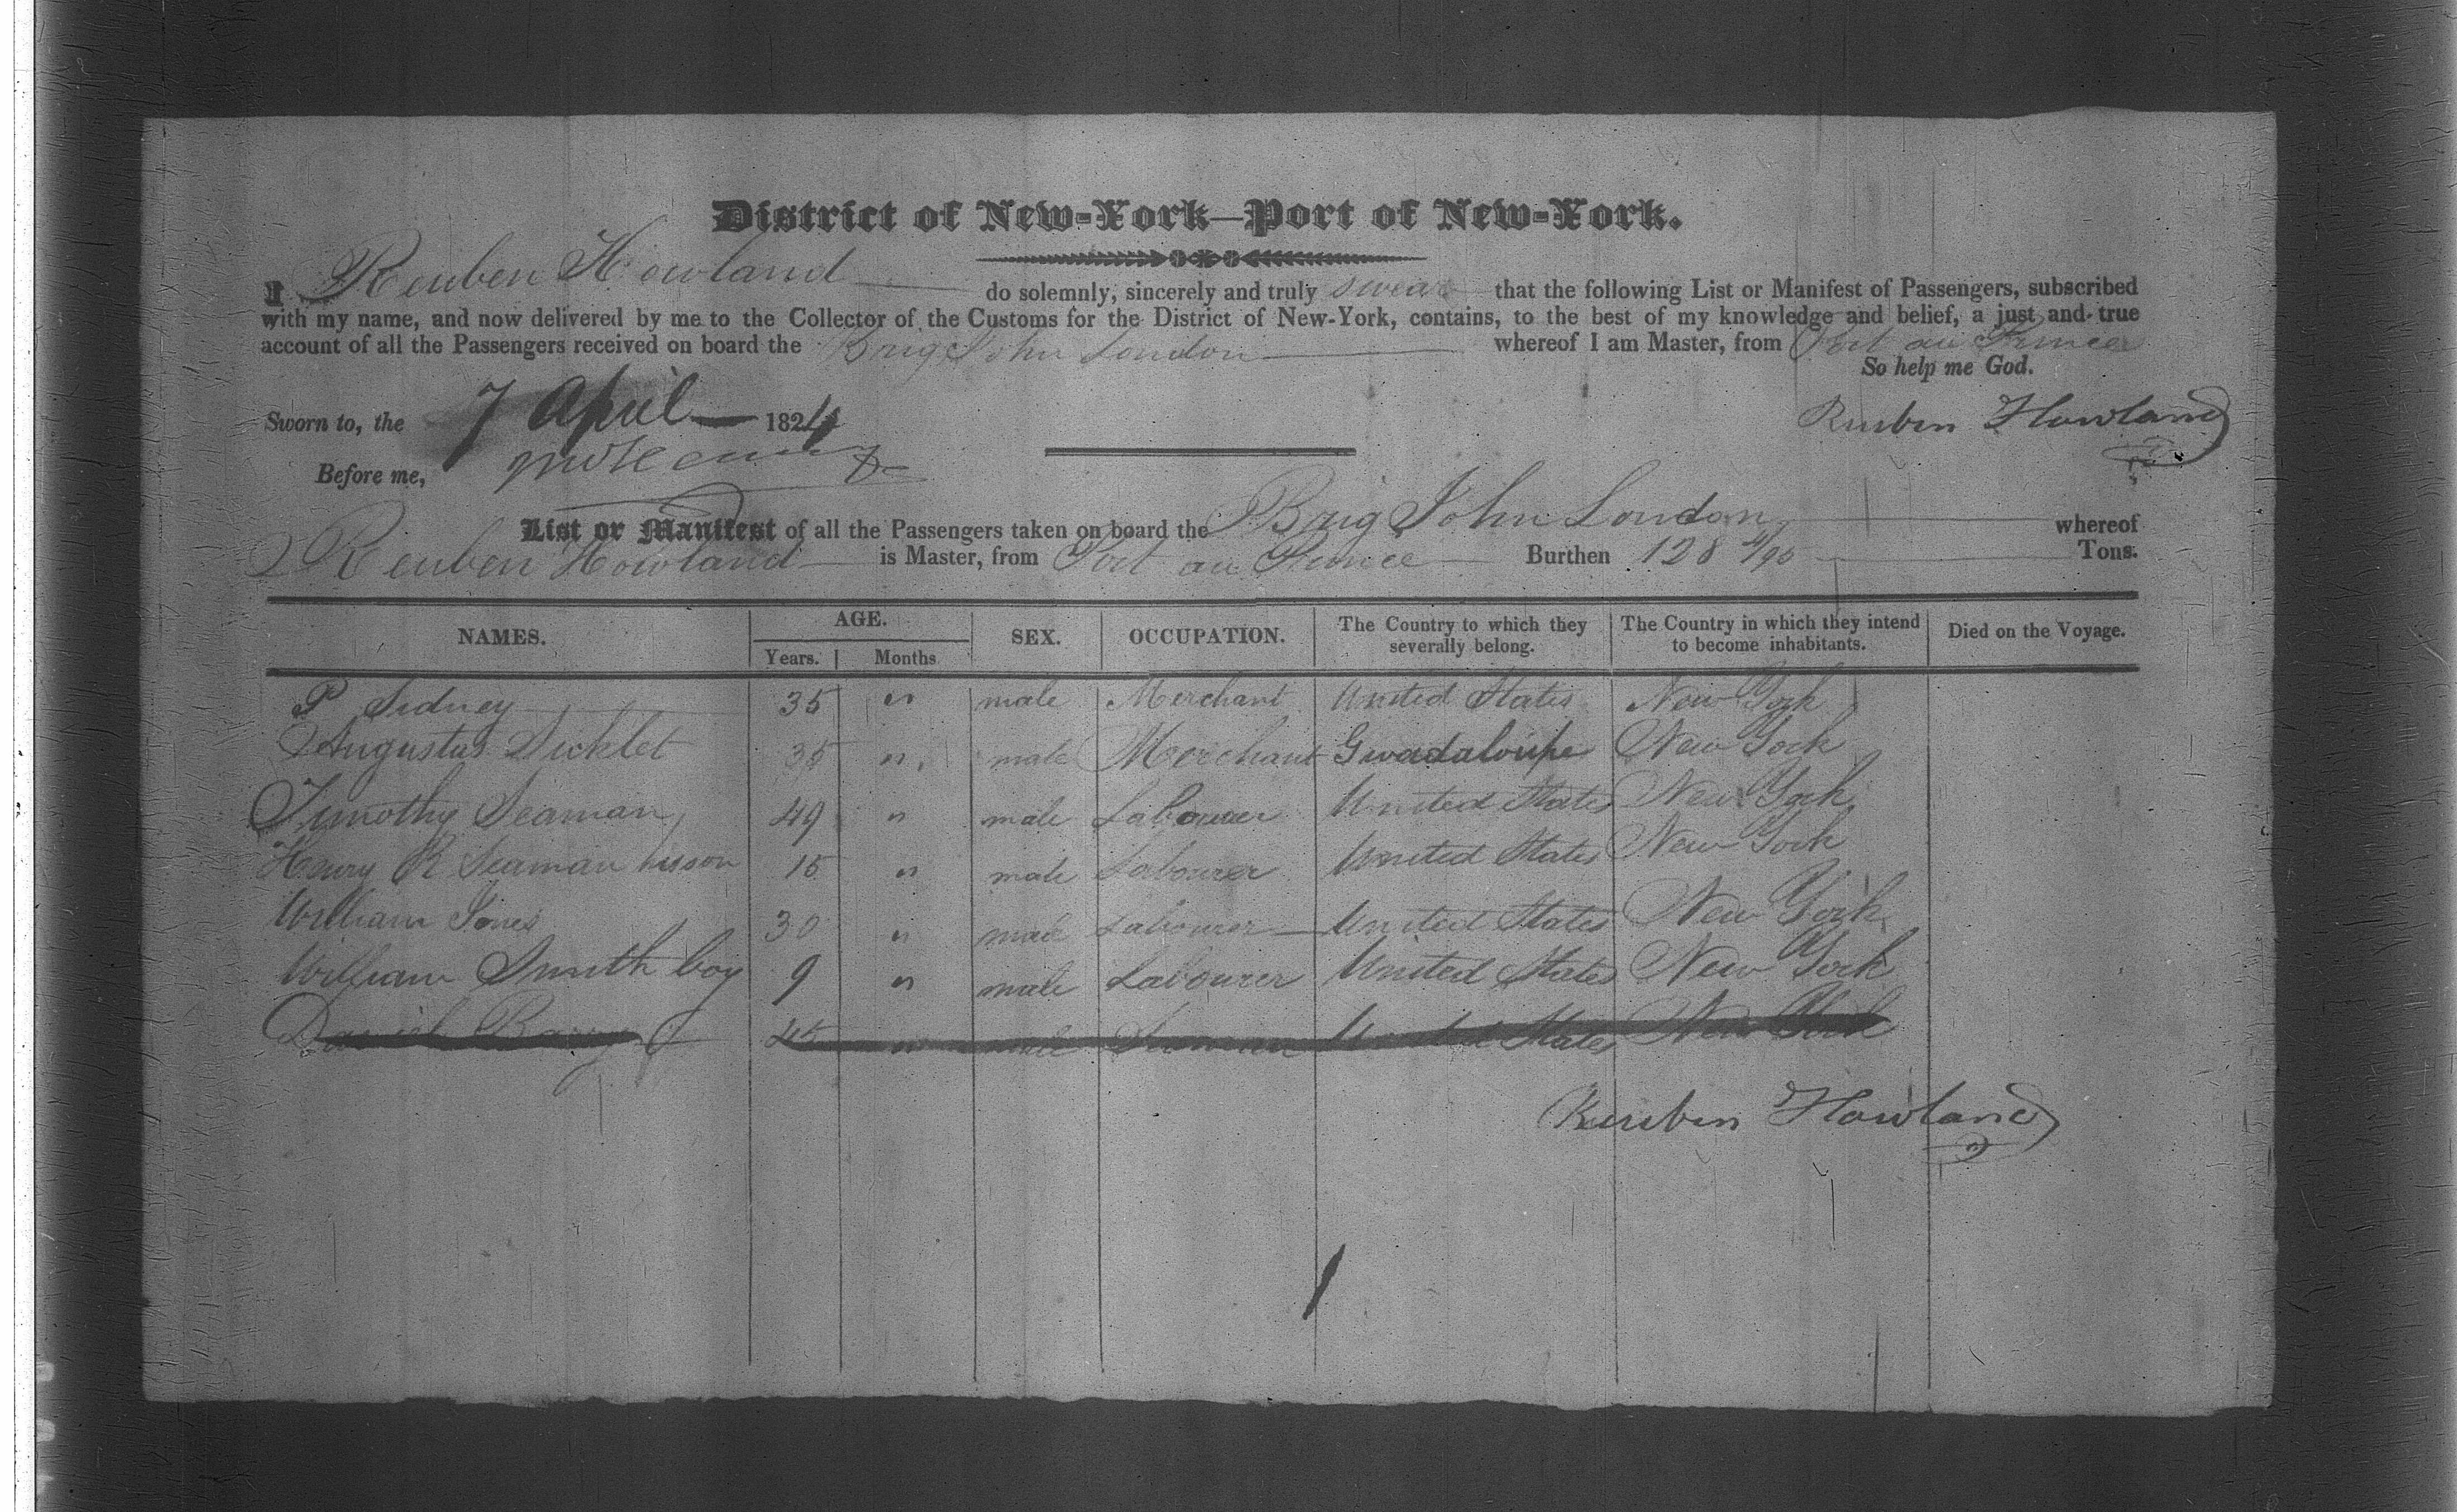 District of New-York—Port of New-York.
I Reuben Howland do solemnly, sincerely and truly swear that the following List or Manifest of Passengers, subscribed
with my name, and now delivered by me to the Collector of the Customs for the District of New-York, contains, to the best of my knowledge and belief, a just and true
account of all the Passengers received on board the Brig John London whereof I am Master, from Port au Prince
So help me God.
Sworn to, the 7 April 1824 Reuben Howland
Before me,
List or Manifest of all the Passengers taken on board the Brig John London whereof
Reuben Howland is Master, from Port au Prince Burthen 128 4/95 Tons.
NAMES. AGE. Years. Months SEX. OCCUPATION. The Country to which they severally belong. The Country in which they intend to become inhabitants. Died on the Voyage.
P Sidney 35 " male Merchant United States New York
Augustus Dicklet 35 " male Merchant Guadaloupe New York
Timothy Seaman 49 " male Labourer United States New York
Henry R Seaman his son 15 " male Labourer United States New York
William Jones 30 " male Labourer United States New York
William Smith boy 9 " male Labourer United States New York
Daniel Barry 45 " male Seaman United States New York
Reuben Howland